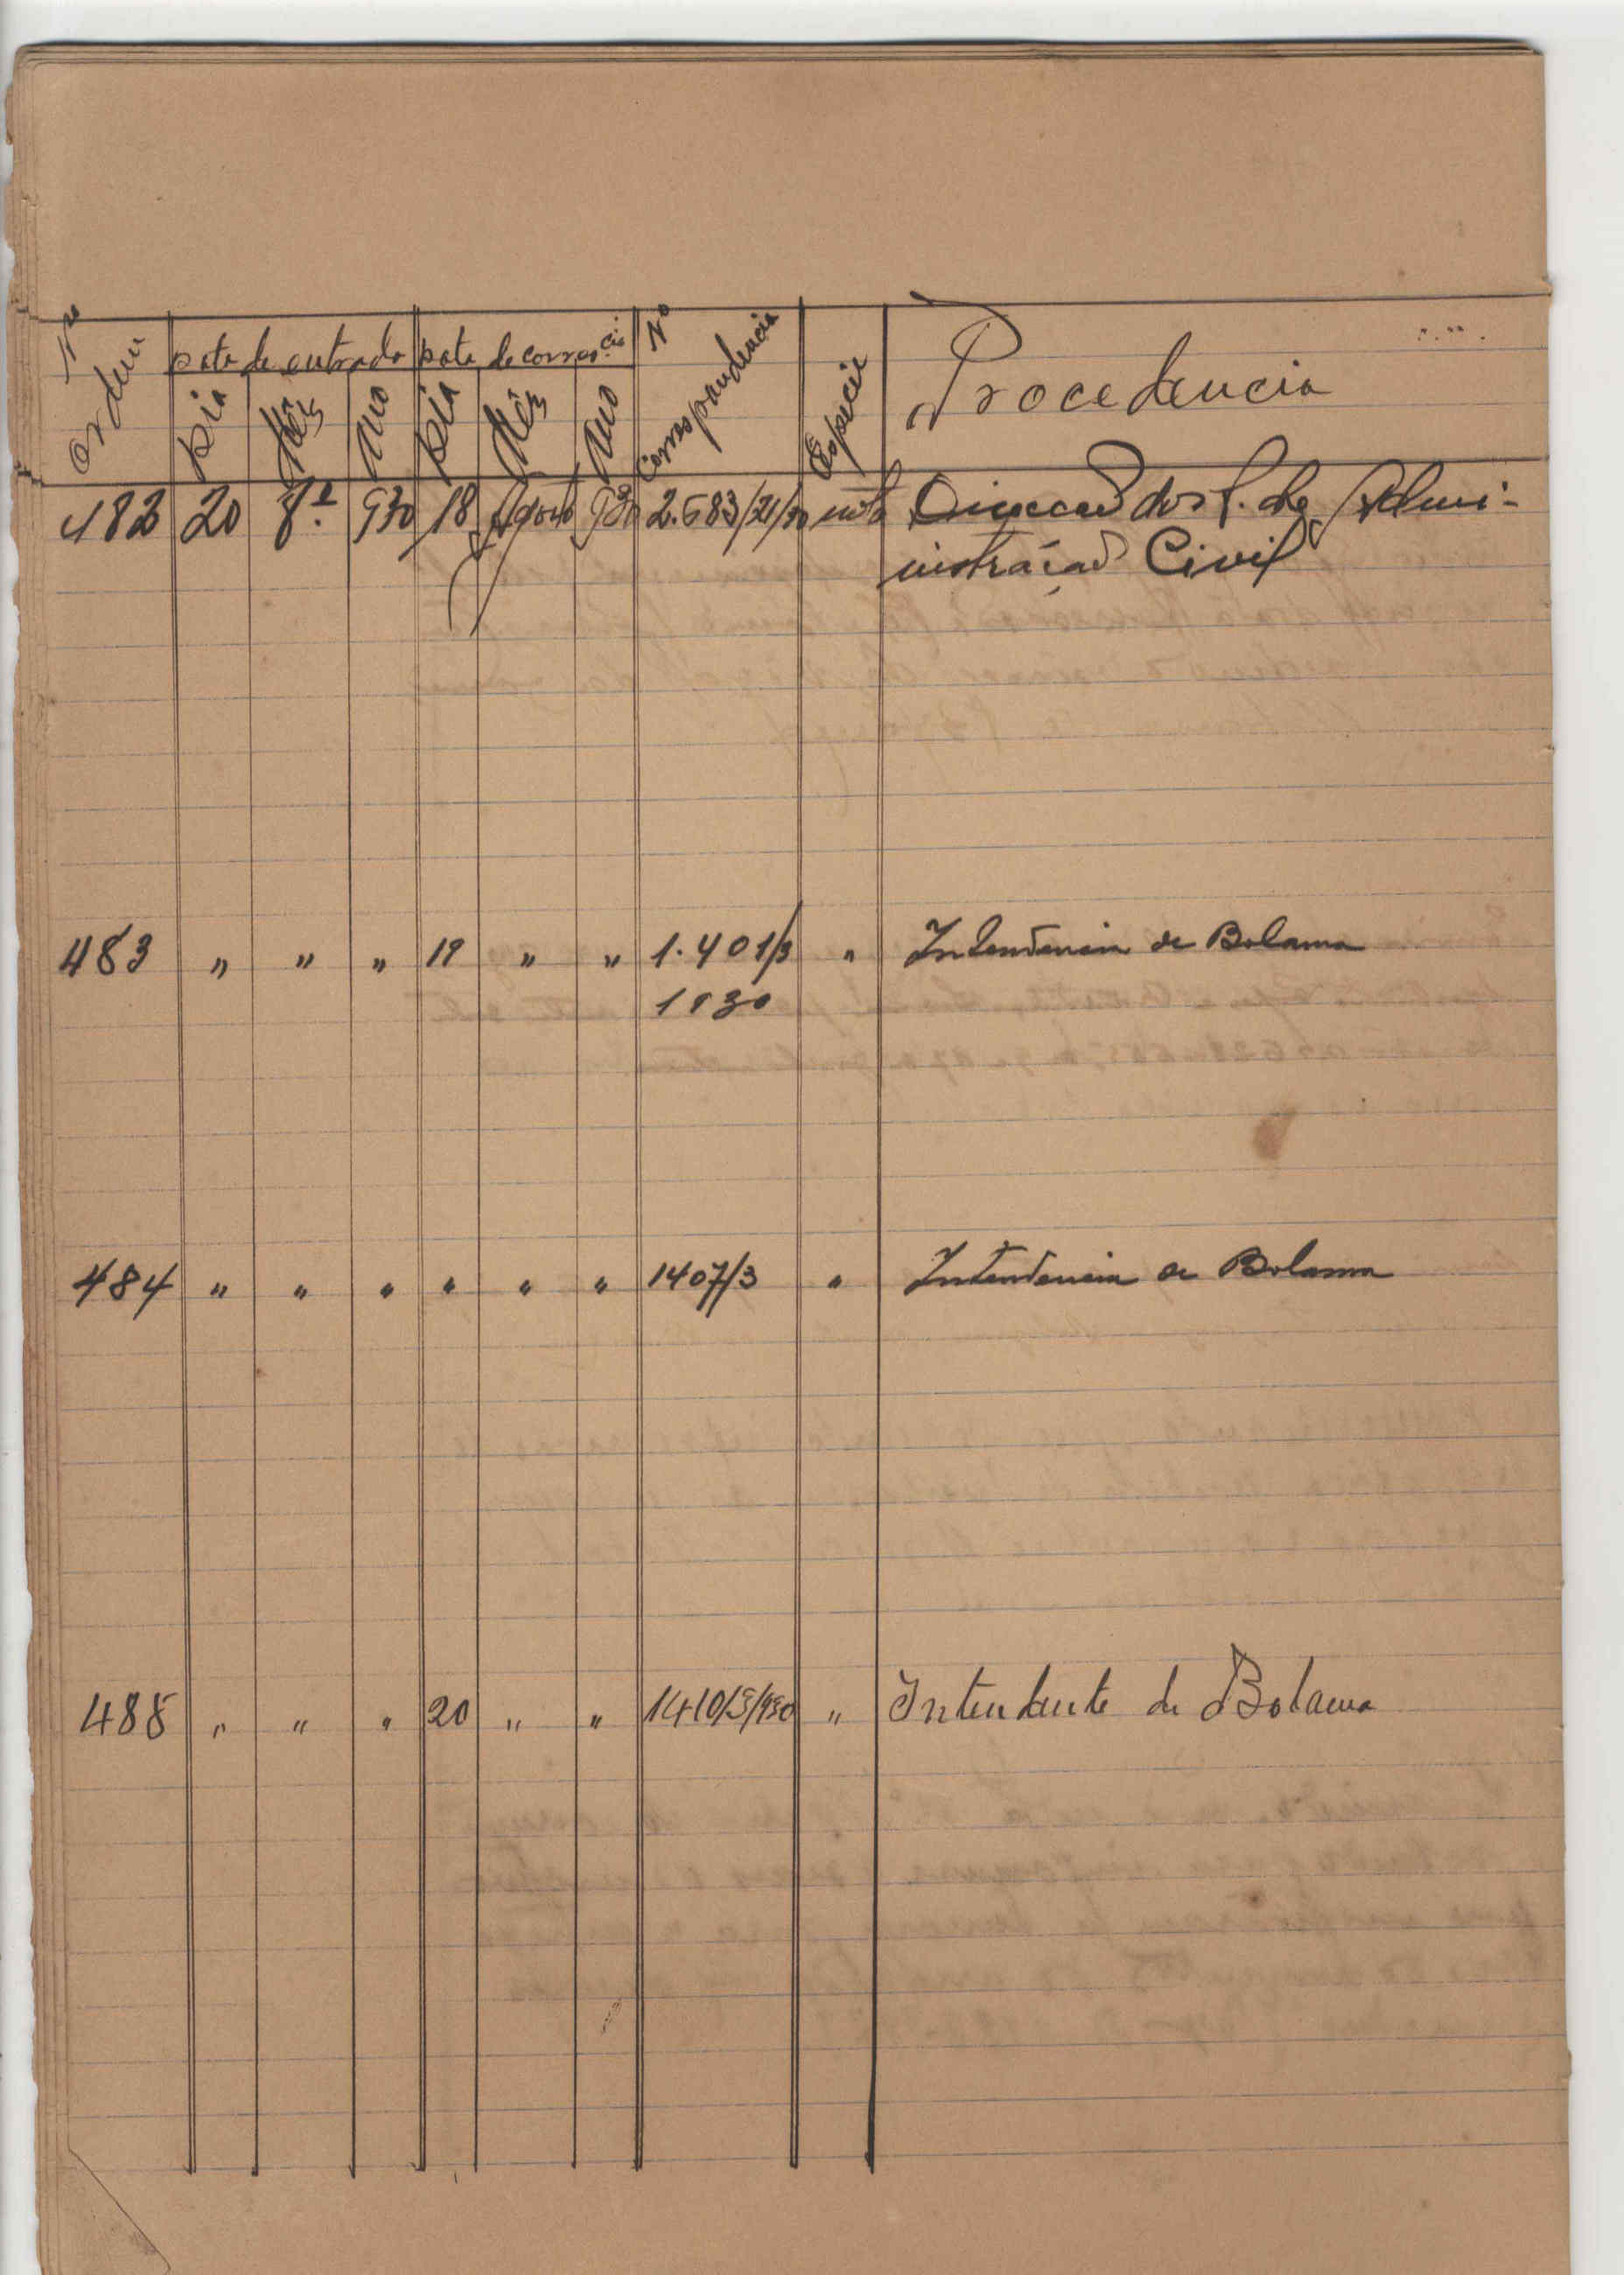 Nº Ordem | Data de entrada | Data de corres.cia | Nº Correspondencia | Espécie | Procedencia
Dia | Mês | Ano | Dia | Mês | Ano
482 | 20 | 8º | 930 | 18 | Agosto | 930 | 2.583/21/30 | nota | Direccao dos S. de Admi-
nistração Civil
483 | " | " | " | 19 | " | " | 1.401/3 | " | Intendencia de Bolama
1930
484 | " | " | " | " | " | " | 1407/3 | " | Intendencia de Bolama
485 | " | " | " | 20 | " | " | 1410/3/930 | " | Intendente de Bolama